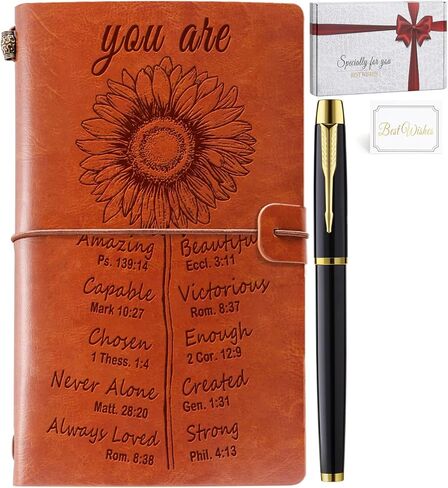 you are
Amazing
Ps. 139:14
Beautiful
Eccl. 3:11
Capable
Mark 10:27
Victorious
Rom. 8:37
Chosen
1 Thess. 1:4
Enough
2 Cor. 12:9
Never Alone
Matt. 28:20
Created
Gen. 1:31
Always Loved
Rom. 8:38
Strong
Phil. 4:13
Specially for you
BEST WISHES
Best Wishes